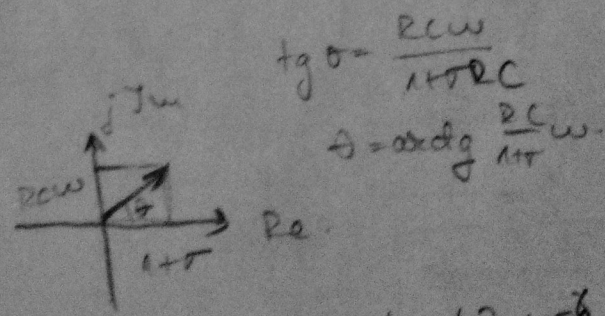 tg σ = RCω / 1+σRC
θ = arctg RC / 1+σ ω
jIm
RCω
Re
1+σ